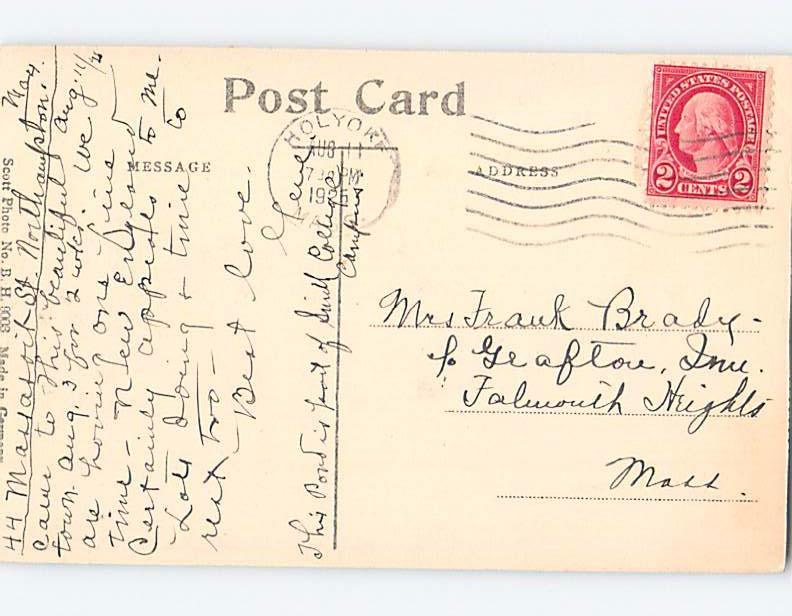 Post Card
MESSAGE
ADDRESS
HOLYOKE
AUG 11
7 30 PM
MASS
UNITED STATES POSTAGE
2 CENTS 2
44 Massasoit St. Northampton,
Came to this beautiful
town Aug. 3 for 2 wks. We
are having one fine
time - New England
Certainly appeals to me.
Lots doing & time to
rest too -
Best love.
This Pond is part of Smith College
Campus
Mrs Frank Brady -
℅ Grafton, Inn.
Falmouth Heights
Mass.
Scott Photo No. B. H. 9003 Made in Germany